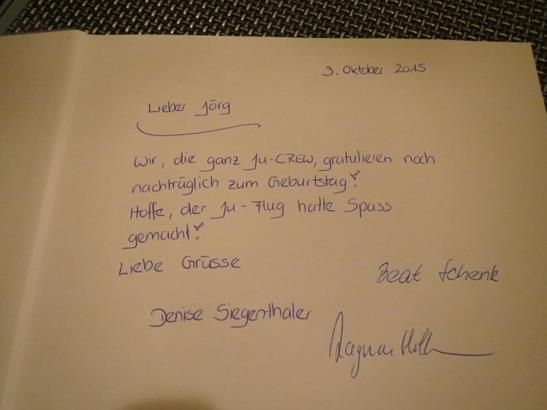 3. Oktober 2015
Lieber Jörg
Wir, die ganz Ju-CREW, gratulieren noch
nachträglich zum Geburtstag!
Hoffe, der Ju-Flug hatte Spass
gemacht!
Liebe Grüsse
Beat Schenk
Denise Siegenthaler